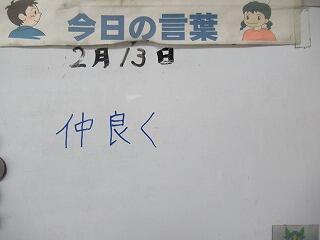 今日の言葉
2月13日
仲良く